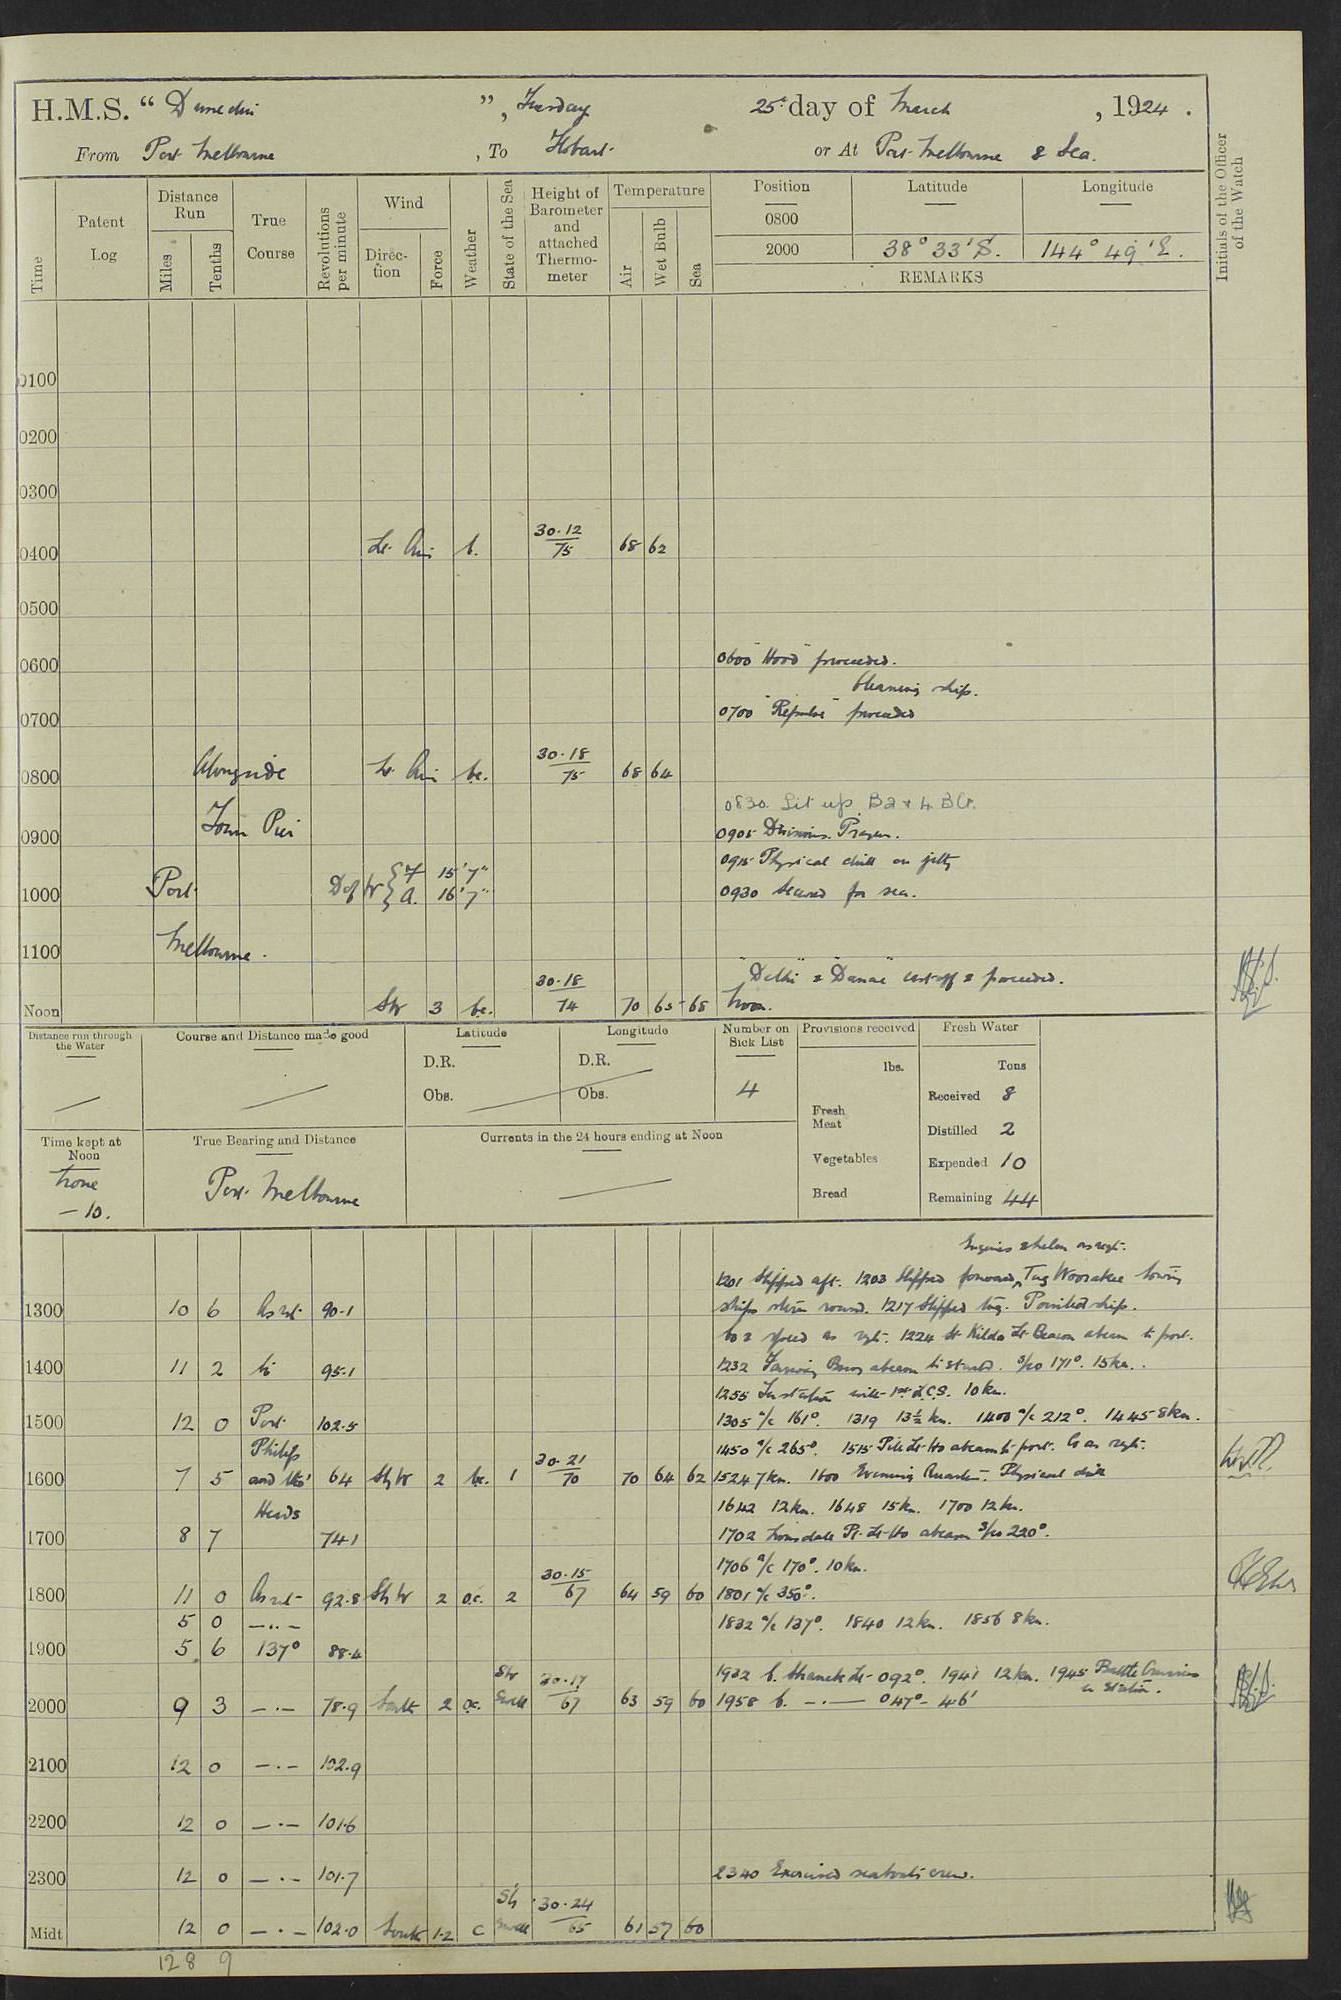 H.M.S. " Dunedin ", Tuesday 25th day of March, 1924.
From Port Melbourne, To Hobart. or At Port Melbourne & Sea.
Initials of the Officer of the Watch
Time
Patent Log
Distance Run
Miles
Tenths
True Course
Revolutions per minute
Wind
Direc-tion
Force
Weather
State of the Sea
Height of Barometer and attached Thermo-meter
Temperature
Air
Wet Bulb
Sea
Position Latitude Longitude
0800
2000 38° 33' S. 144° 49' E.
REMARKS
0100
0200
0300
0400 Lt. Airs b. 30.12 / 75 68 62
0500
0600 0600 "Hood" proceeded.
Cleaning ship.
0700 0700 "Repulse" proceeded
0800 Alongside Lt. Airs bc. 30.18 / 75 68 64
0830. Lit up B2 & 4 Blr.
0900 Town Pier 0905 Divisions. Prayers.
0915 Physical drill on jetty
1000 Port Dft Wr { F 15' 7" A. 16' 7" 0930 Secured for sea.
1100 Melbourne.
"Delhi" & "Danae" cast off & proceeded.
Noon 3 bc. 30.18 / 74 70 65 68
Distance run through the Water
Course and Distance made good
Latitude
D.R.
Obs.
Longitude
D.R.
Obs.
Number on Sick List
4
Provisions received
lbs.
Fresh Meat
Vegetables
Bread
Fresh Water
Tons
Received 8
Distilled 2
Expended 10
Remaining 44
Time kept at Noon
Zone
-10.
True Bearing and Distance
Port Melbourne
Currents in the 24 hours ending at Noon
Engines & helm as reqt.
1201 Slipped aft. 1203 Slipped forward, Tug Wooratee towing
1300 10 6 As reqt. 90.1 ships stern round. 1217 Slipped tug. Pointed ship.
Co & speed as reqt. 1224 St Kilda Lt Beacon abeam to port.
1400 11 2 95.1 1232 Fawkner Buoy abeam to starbd. S/co 171°. 15 kn.
1255 In station with 1st L.C.S. 10 kn.
1500 12 0 Port 102.5 1305 a/c 161°. 1319 13½ kn. 1400 a/c 212°. 1445 8 kn.
Philip 1450 a/c 265°. 1515 Pile Lt Ho abeam to port. Co as reqt.
1600 7 5 and the 64 SbyW 2 bc. 1 30.21 / 70 70 64 62 1524 7 kn. 1600 Evening Quarters. Physical drill
Heads 1642 12 kn. 1648 15 kn. 1700 12 kn.
1700 8 7 74.1 1702 Lonsdale Pt. Lt Ho abeam S/co 220°.
1706 a/c 170°. 10 kn.
1800 11 0 As reqt 92.8 SbyW 2 oc. 2 30.15 / 67 64 59 60 1801 a/c 350°.
5 0 —..— 1832 a/c 137°. 1840 12 kn. 1856 8 kn.
1900 5 6 137° 88.4
1932 C. Shanck Lt 092°. 1941 12 kn. 1945 Battle Cruisers in station.
2000 9 3 —.— 78.9 South 2 oc. Swell 30.17 / 67 63 59 60 1958 C. —.— 047° — 4.6'
2100 12 0 —.— 102.9
2200 12 0 —.— 101.6
2300 12 0 —.— 101.7 2340 Exercised seaboats crew.
Midt 12 0 —.— 102.0 South 1-2 c Swell 30.24 / 65 61 57 60
128 9